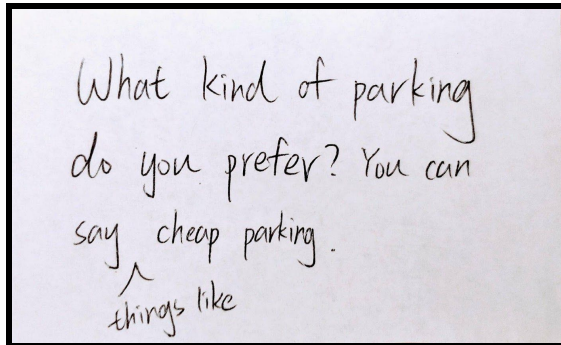 What kind of parking
do you prefer? You can
say cheap parking.
^
things like